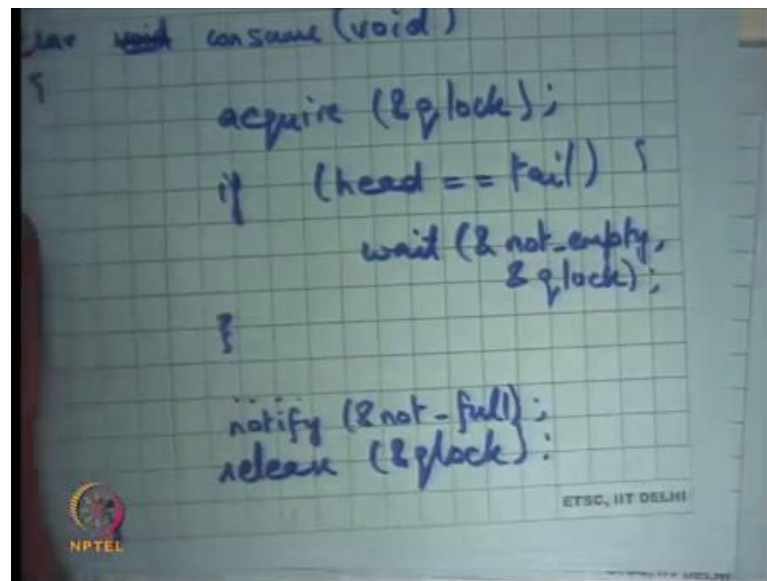 char void consume (void)
{
acquire (&qlock);
if (head == tail) {
wait (&not_empty,
&qlock);
}
....
notify (&not-full);
release (&qlock);
ETSC, IIT DELHI
NPTEL